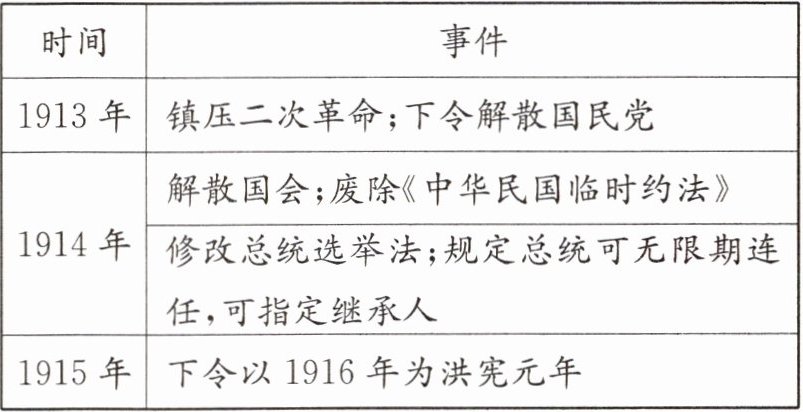 时间 事件
1913 年 镇压二次革命;下令解散国民党
1914 年 解散国会;废除《中华民国临时约法》
修改总统选举法;规定总统可无限期连
任,可指定继承人
1915 年 下令以 1916 年为洪宪元年